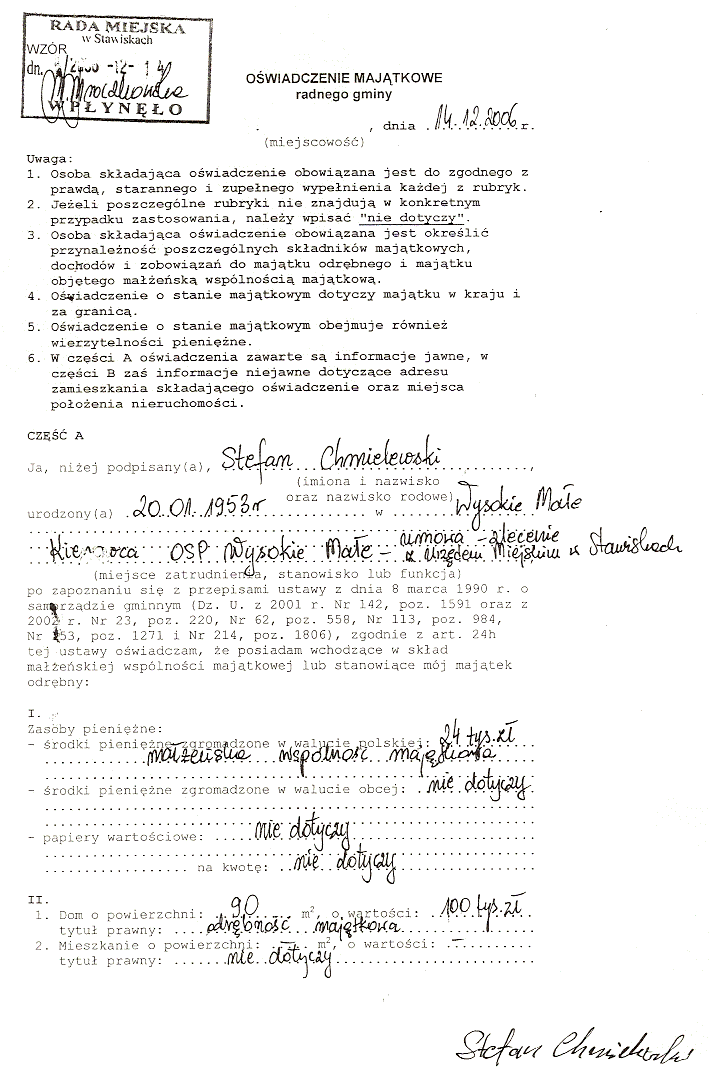 RADA MIEJSKA
w Stawiskach
WZÓR
dn. 2006 -12- 14
WPŁYNĘŁO
OŚWIADCZENIE MAJĄTKOWE
radnego gminy
, dnia 14.12.2006 r.
(miejscowość)
Uwaga:
1. Osoba składająca oświadczenie obowiązana jest do zgodnego z
prawdą, starannego i zupełnego wypełnienia każdej z rubryk.
2. Jeżeli poszczególne rubryki nie znajdują w konkretnym
przypadku zastosowania, należy wpisać "nie dotyczy".
3. Osoba składająca oświadczenie obowiązana jest określić
przynależność poszczególnych składników majątkowych,
dochodów i zobowiązań do majątku odrębnego i majątku
objętego małżeńską wspólnością majątkową.
4. Oświadczenie o stanie majątkowym dotyczy majątku w kraju i
za granicą.
5. Oświadczenie o stanie majątkowym obejmuje również
wierzytelności pieniężne.
6. W części A oświadczenia zawarte są informacje jawne, w
części B zaś informacje niejawne dotyczące adresu
zamieszkania składającego oświadczenie oraz miejsca
położenia nieruchomości.
CZĘŚĆ A
Ja, niżej podpisany(a), Stefan Chmielewski,
(imiona i nazwisko
oraz nazwisko rodowe)
urodzony(a) 20.01.1953r w Wysokie Małe
Kierowca OSP Wysokie Małe - umowa - zlecenie
z Urzędem Miejskim w Stawiskach
(miejsce zatrudnienia, stanowisko lub funkcja)
po zapoznaniu się z przepisami ustawy z dnia 8 marca 1990 r. o
samorządzie gminnym (Dz. U. z 2001 r. Nr 142, poz. 1591 oraz z
2002 r. Nr 23, poz. 220, Nr 62, poz. 558, Nr 113, poz. 984,
Nr 153, poz. 1271 i Nr 214, poz. 1806), zgodnie z art. 24h
tej ustawy oświadczam, że posiadam wchodzące w skład
małżeńskiej wspólności majątkowej lub stanowiące mój majątek
odrębny:
I.
Zasoby pieniężne:
- środki pieniężne zgromadzone w walucie polskiej: 24 tys.zł
małżeńska wspólność majątkowa
- środki pieniężne zgromadzone w walucie obcej: nie dotyczy
- papiery wartościowe: nie dotyczy
na kwotę: nie dotyczy
II.
1. Dom o powierzchni: 90 m², o wartości: 100 tys.zł
tytuł prawny: odrębność majątkowa
2. Mieszkanie o powierzchni: - m², o wartości: -
tytuł prawny: nie dotyczy
Stefan Chmielewski